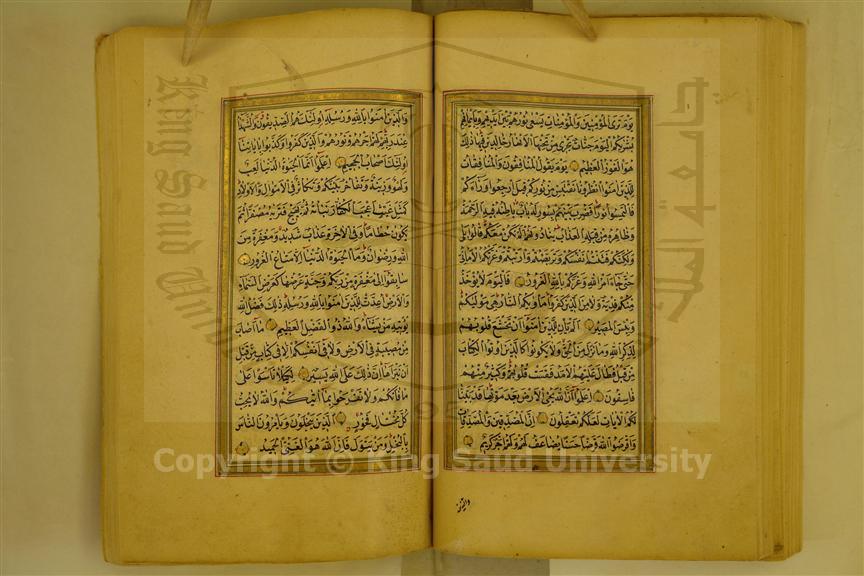 يوم ترى المؤمنين والمؤمنات يسعى نورهم بين ايديهم وبايمانهم
بشريكم اليوم جنات تجري من تحتها الانهار خالدين فيها ذلك
هو الفوز العظيم يوم يقول المنافقون والمنافقات
للذين امنوا انظرونا نقتبس من نوركم قيل ارجعوا وراءكم
فالتمسوا نورا فضرب بينهم بسور له باب باطنه فيه الرحمة
وظاهره من قبله العذاب ينادونهم الم نكن معكم قالوا بلى
ولكنكم فتنتم انفسكم وتربصتم وارتبتم وغرتكم الاماني
حتى جاء امر الله وغركم بالله الغرور فاليوم لا يؤخذ
منكم فدية ولا من الذين كفروا ماويكم النار هي موليكم
وبئس المصير الم يان للذين امنوا ان تخشع قلوبهم
لذكر الله وما نزل من الحق ولا يكونوا كالذين اوتوا الكتاب
من قبل فطال عليهم الامد فقست قلوبهم وكثير منهم
فاسقون اعلموا ان الله يحيي الارض بعد موتها قد بينا
لكم الايات لعلكم تعقلون ان المصدقين والمصدقات
واقرضوا الله قرضا حسنا يضاعف لهم ولهم اجر كريم
والذين
والذين امنوا بالله ورسله اولئك هم الصديقون والشهداء
عند ربهم لهم اجرهم ونورهم والذين كفروا وكذبوا باياتنا
اولئك اصحاب الجحيم اعلموا انما الحيوة الدنيا لعب
ولهو وزينة وتفاخر بينكم وتكاثر في الاموال والاولاد
كمثل غيث اعجب الكفار نباته ثم يهيج فتريه مصفرا ثم
يكون حطاما وفي الاخرة عذاب شديد ومغفرة من
الله ورضوان وما الحيوة الدنيا الا متاع الغرور
سابقوا الى مغفرة من ربكم وجنة عرضها كعرض السماء
والارض اعدت للذين امنوا بالله ورسله ذلك فضل الله
يؤتيه من يشاء والله ذو الفضل العظيم ما اصاب
من مصيبة في الارض ولا في انفسكم الا في كتاب من قبل
ان نبراها ان ذلك على الله يسير لكيلا تاسوا على
ما فاتكم ولا تفرحوا بما اتيكم والله لا يحب
كل مختال فخور الذين يبخلون ويامرون الناس
بالبخل ومن يتول فان الله هو الغني الحميد
King Saud University
جامعة الملك
Copyright © King Saud University